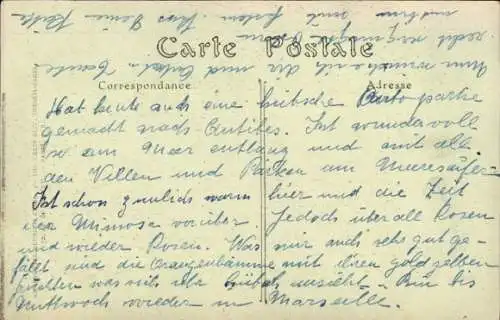 Carte Postale
Correspondance
Adresse
Hab heute auch eine hübsche Autopartie
gemacht nach Antibes. Ist wundervoll
so am Meer entlang und mit all
den Villen und Parken am Meeresufer.
Ist schon ziemlich warm hier und die Zeit
der Mimose vorüber Jedoch überall Rosen
und wieder Rosen. Was mir auch sehr gut ge-
fällt sind die Orangenbäume mit ihren goldgelben
Früchten was sich sehr hübsch ansieht. Bin bis
Mittwoch wieder in Marseille.
Nun wünsche ich dir und Tante
recht vergnügte Ostern
und bin mit Deine